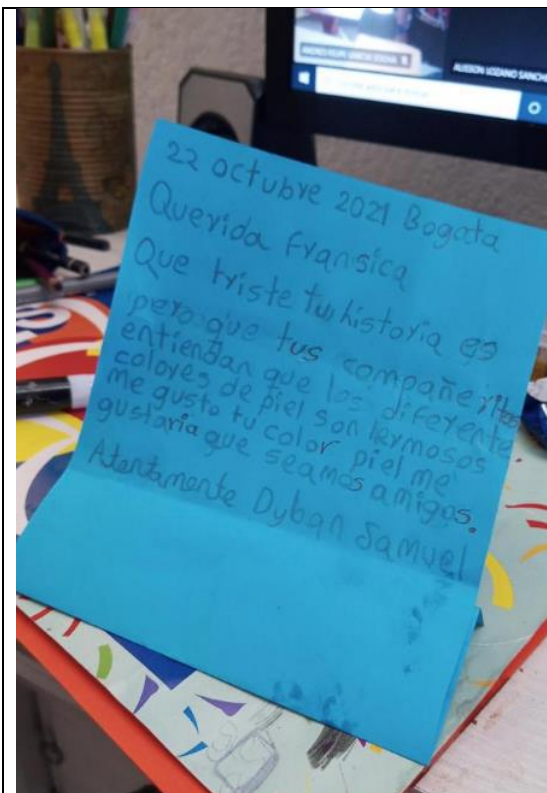 ALISSON LOZANO SANCHE
22 octubre 2021 Bogata
Querida Fransica
Que triste tu historia es
pero que tus compañeritos
entiendan que los diferente
colores de piel son hermosos
me gusto tu color piel me
gustaria que seamos amigos.
Atentamente Dyban Samuel